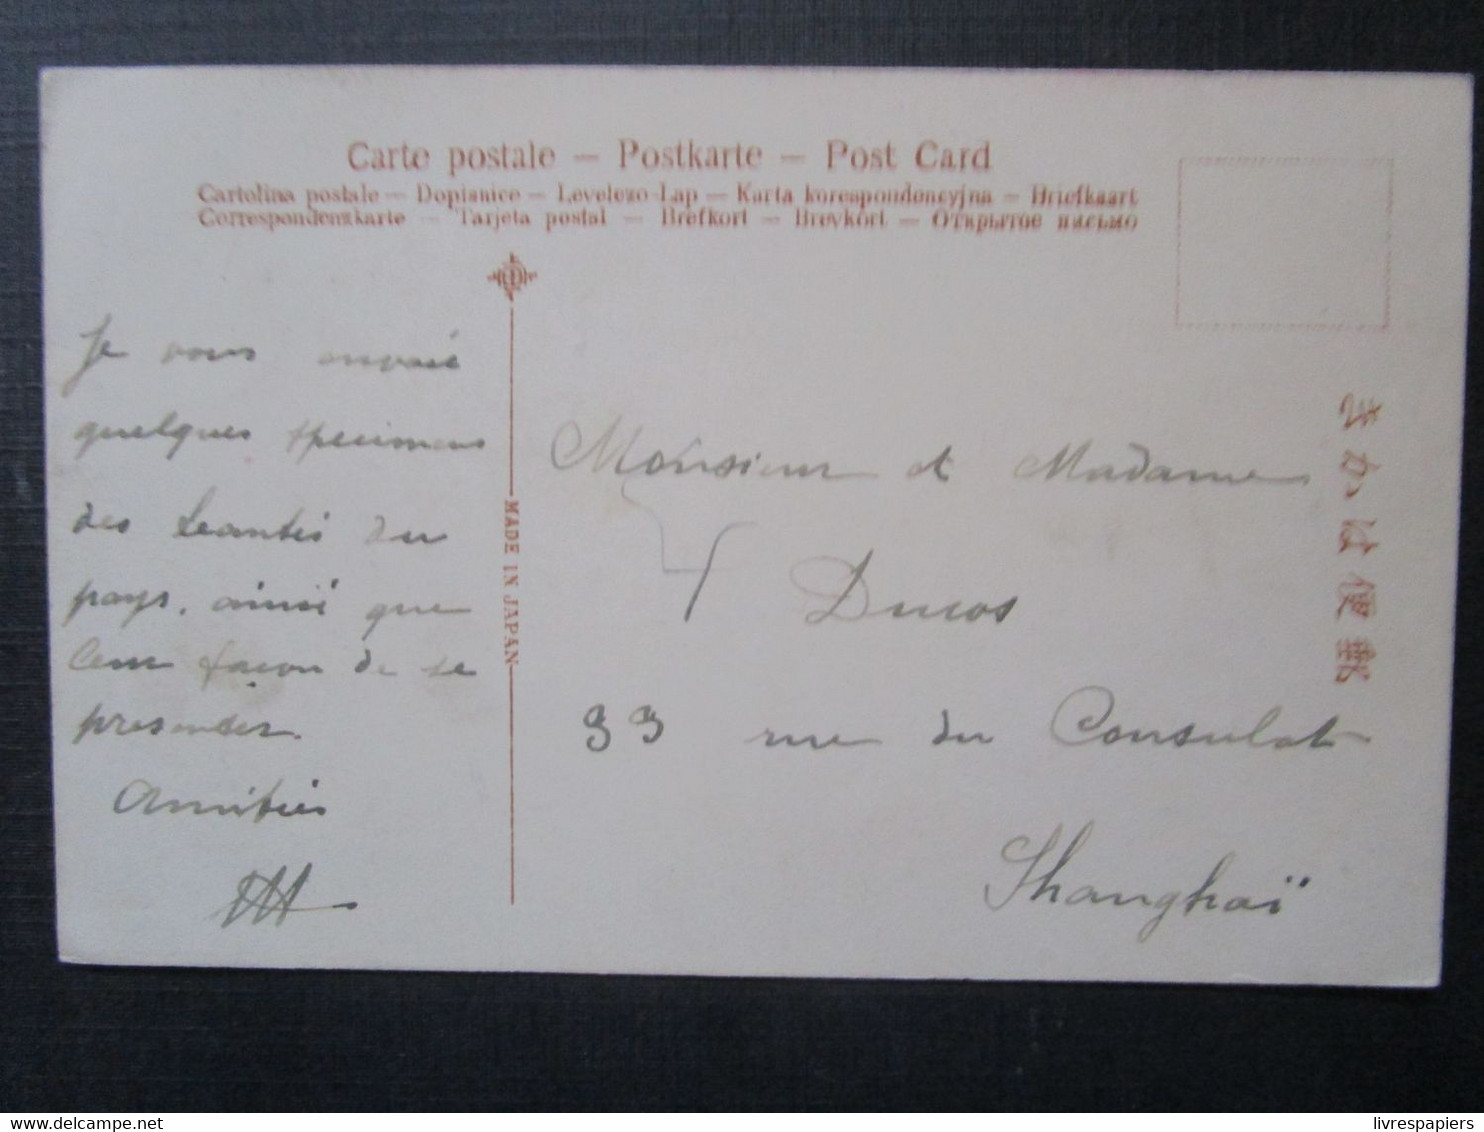 Carte postale — Postkarte — Post Card
Cartolina postale — Dopisnice — Levelezo-Lap — Karta korespondencyjna — Briefkaart
Correspondenzkarte — Tarjeta postal — Brefkort — Brevkort — Открытое письмо
Je vous envoie
quelques specimens
des beautés du
pays, ainsi que
leur façon de se
presenter.
Amitiés
MADE IN JAPAN
Monsieur et Madame
Ducos
33 rue du Consulat
Shanghaï
きかは便郵
livrespapiers